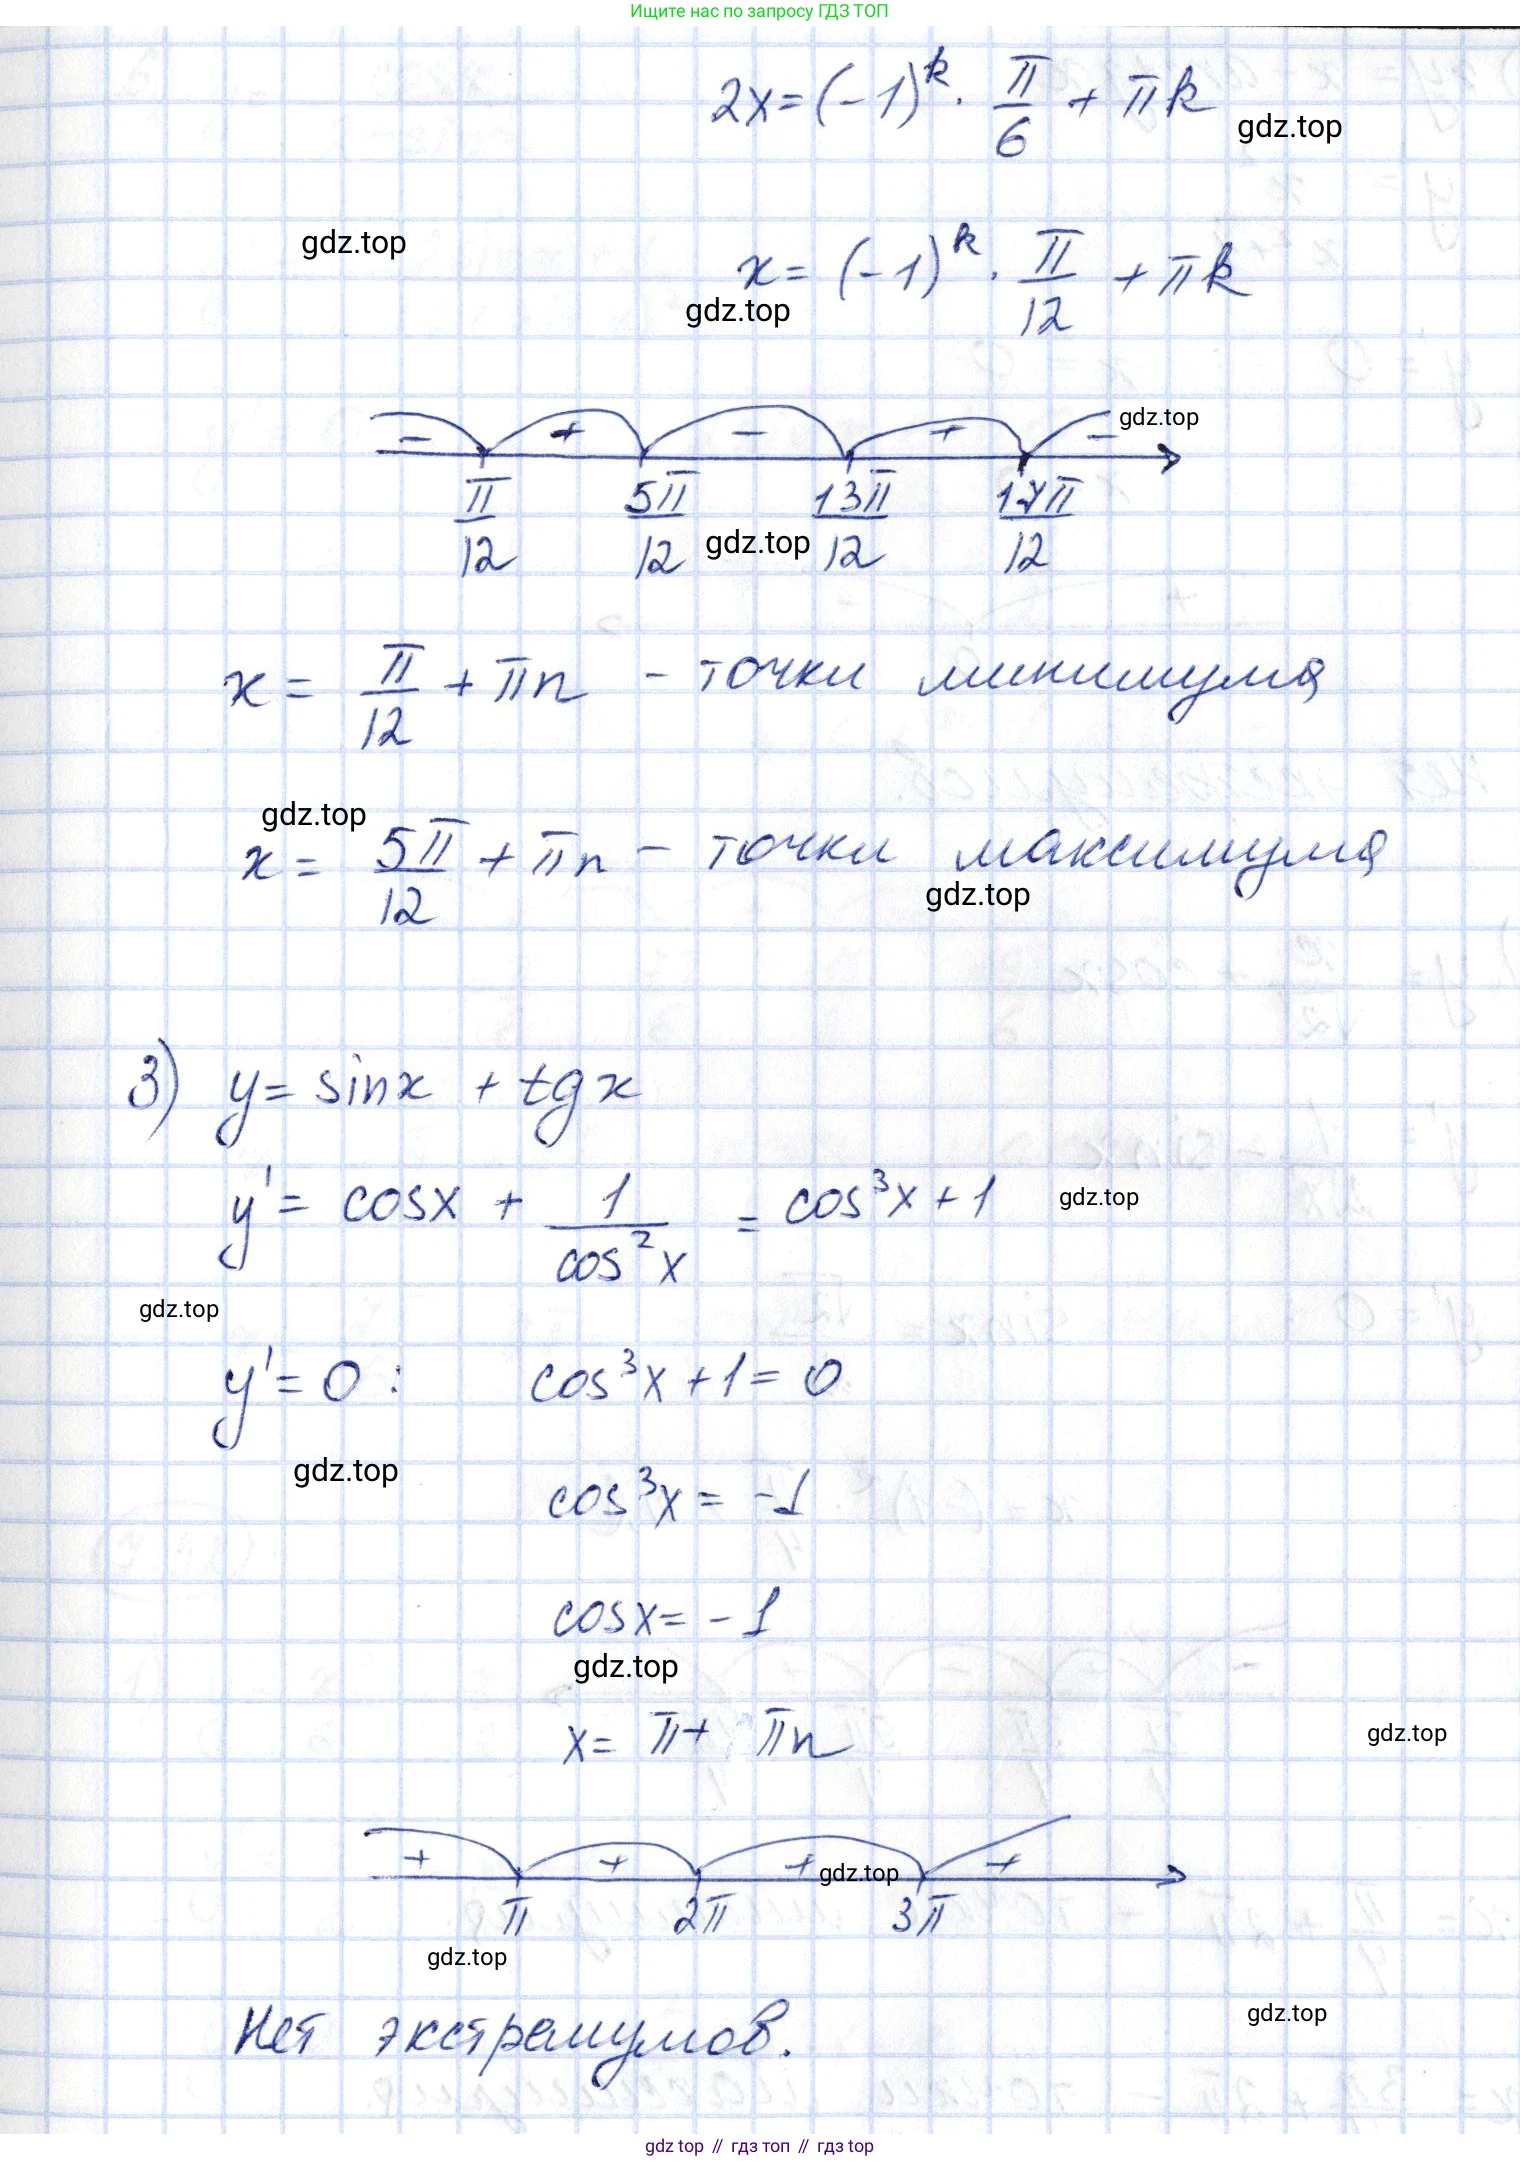 Ищите нас по запросу ГДЗ ТОП
2x = (-1)^k · π/6 + πk
gdz.top
gdz.top
x = (-1)^k · π/12 + πk
gdz.top
- + - + - gdz.top
π/12 5π/12 13π/12 17π/12
gdz.top
x = π/12 + πn - точки минимума
gdz.top
x = 5π/12 + πn - точки максимума
gdz.top
3) y = sinx + tgx
y' = cosx + 1/cos²x = cos³x + 1 gdz.top
gdz.top
y' = 0 : cos³x + 1 = 0
gdz.top
cos³x = -1
cosx = -1
gdz.top
x = π + πn
gdz.top
+ + + gdz.top +
π 2π 3π
gdz.top
Нет экстремумов.
gdz.top
gdz top // гдз топ // гдз top